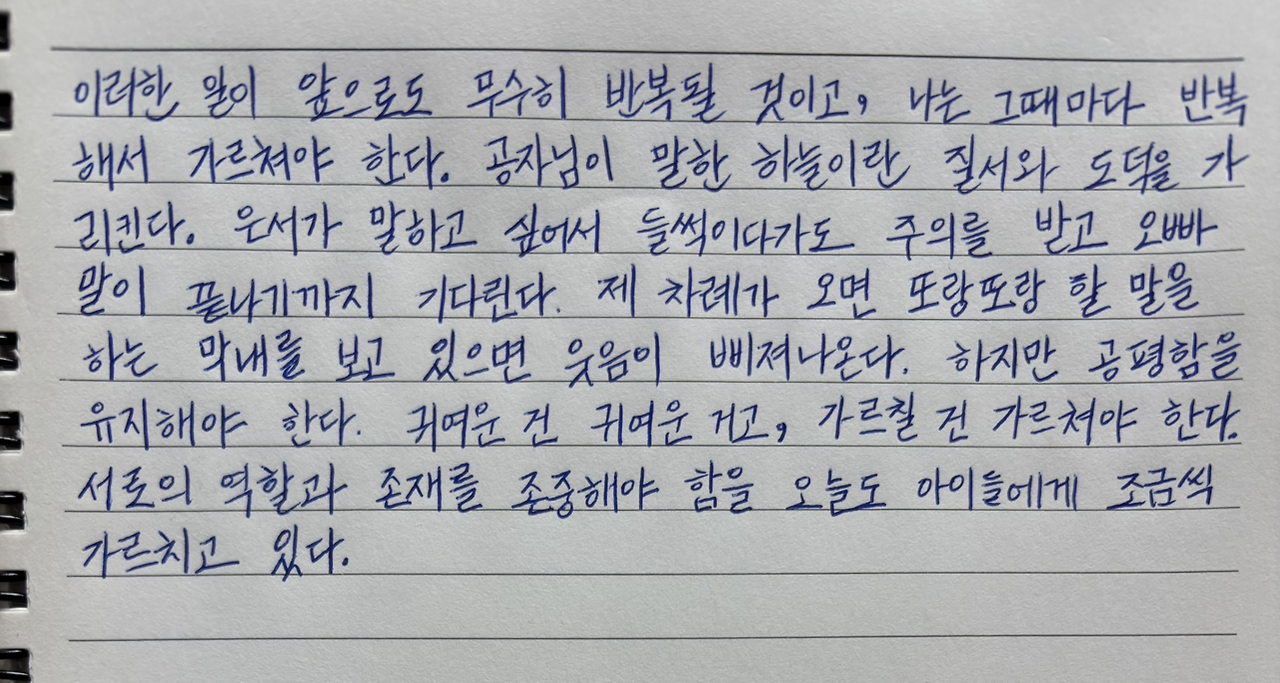 이러한 일이 앞으로도 무수히 반복될 것이고, 나는 그때마다 반복
해서 가르쳐야 한다. 공자님이 말한 하늘이란 질서와 도덕을 가
리킨다. 은서가 말하고 싶어서 들썩이다가도 주의를 받고 오빠
말이 끝나기까지 기다린다. 제 차례가 오면 또랑또랑 할 말을
하는 막내를 보고 있으면 웃음이 삐져나온다. 하지만 공평함을
유지해야 한다. 귀여운 건 귀여운 거고, 가르칠 건 가르쳐야 한다.
서로의 역할과 존재를 존중해야 함을 오늘도 아이들에게 조금씩
가르치고 있다.